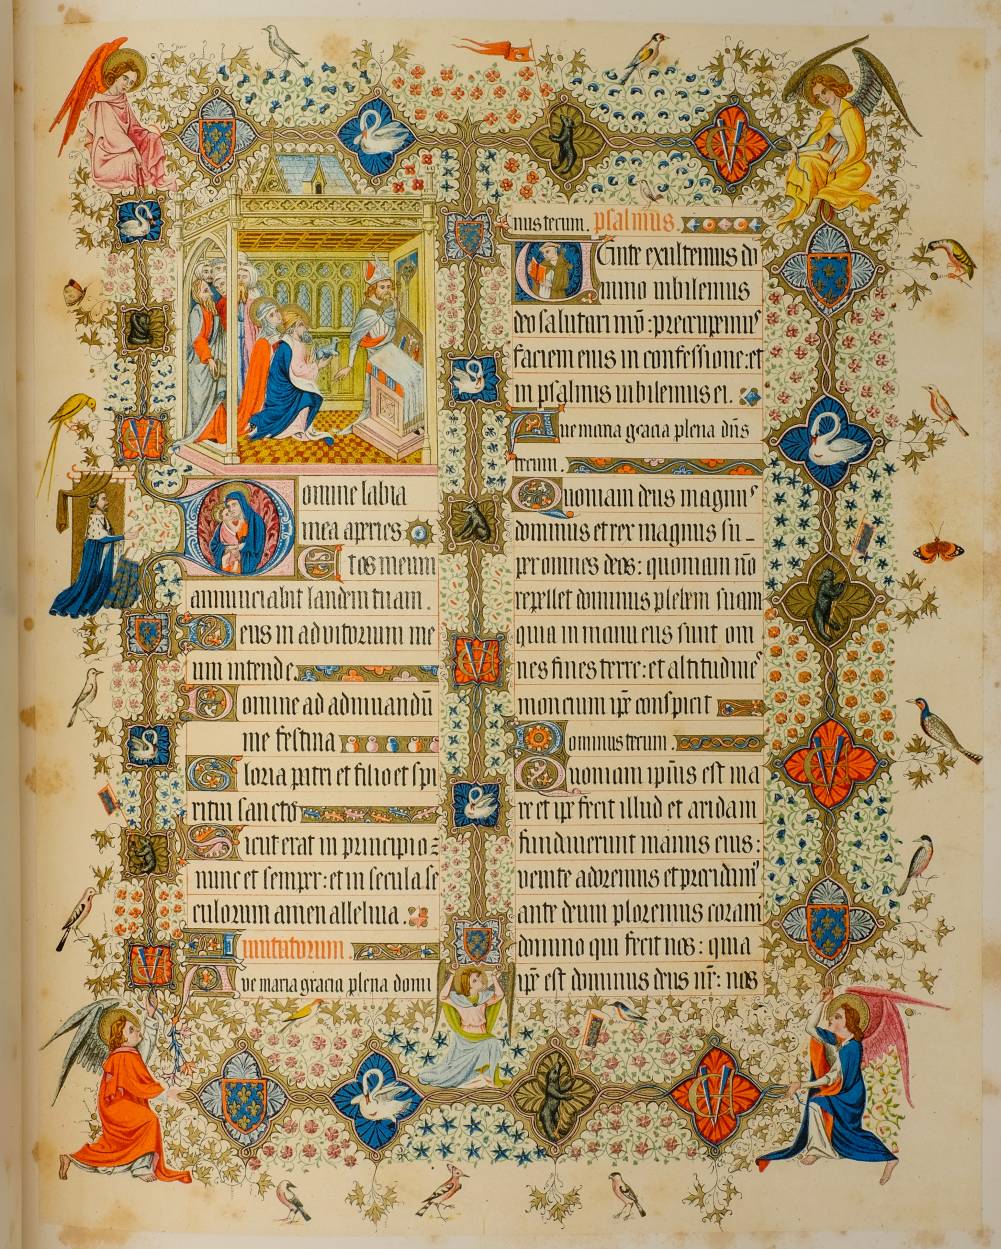 omine labia
mea aperies
Et os meum
annunciabit laudem tuam.
Deus in adiutorium me
um intende.
Domine ad adiuuandū
me festina
Gloria patri et filio et spi
ritui sancto
Sicut erat in principio:
nunc et semper: et in secula se
culorum amen alleluia.
Inuitatorium.
Aue maria gracia plena domi
nus tecum. psalmus
Venite exultemus do
mino iubilemus
deo salutari
faciem eius in confessione: et
in psalmis iubilemus ei.
Aue maria gracia plena dūs
tecum.
Quoniam deus magnus
dominus et rex magnus su-
per omnes deos: quoniam nō
repellet dominus plebem suam
quia in manu eius sunt om
nes fines terre: et altitudines
moncium ipē conspicit
Dominus tecum.
Quoniam ipīus est ma
re et ipē fecit illud et aridam
fundauerunt manus eius:
venite adoremus et
ante deum ploremus coram
domino qui fecit nos: quia
ipē est dominus deus nr̄: nos